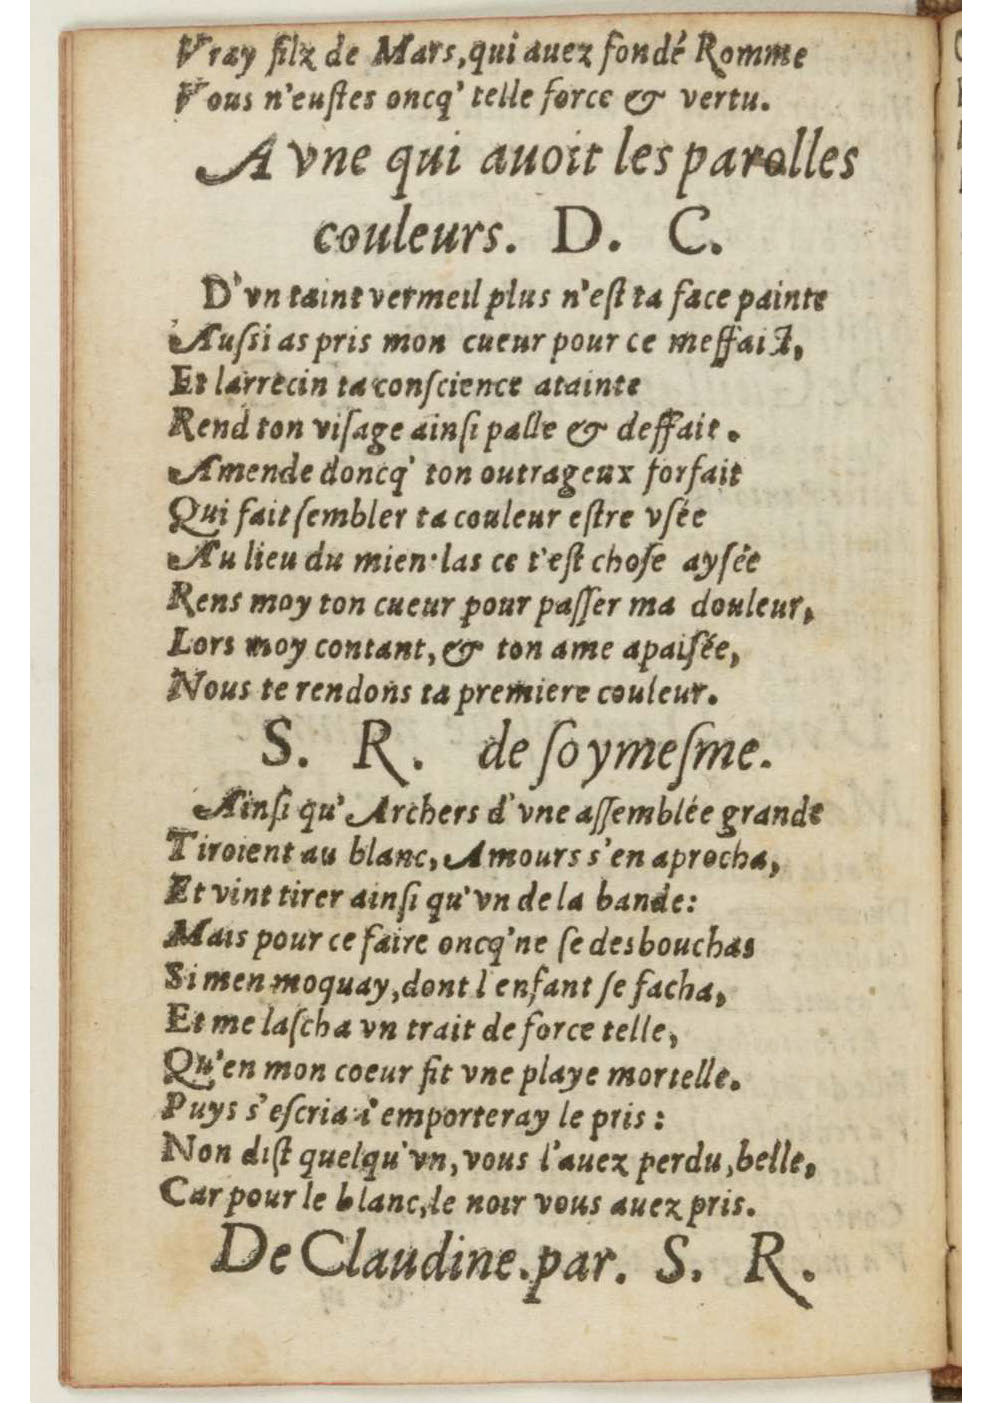 Vray filz de Mars, qui auez fondé Romme
Vous n'euſtes oncq' telle force & vertu.
A vne qui auoit les parolles
couleurs. D. C.
D'vn taint vermeil plus n'eſt ta face painte
Auſsi as pris mon cueur pour ce meffaict,
Et larrecin ta conſcience atainte
Rend ton viſage ainſi palle & deffait.
Amende doncq' ton outrageux forfait
Qui fait ſembler ta couleur eſtre vſée
Au lieu du mien·las ce t'eſt choſe ayſée
Rens moy ton cueur pour paſſer ma douleur,
Lors moy contant, & ton ame apaiſée,
Nous te rendons ta premiere couleur.
S. R. de ſoymeſme.
Ainſi qu' Archers d'vne aſſemblée grande
Tiroient au blanc, Amours s'en aprocha,
Et vint tirer ainſi qu'vn de la bande:
Mais pour ce faire oncq'ne ſe desbouchas
Si men moquay, dont l'enfant ſe facha,
Et me laſcha vn trait de force telle,
Qu'en mon coeur fit vne playe mortelle.
Puys s'eſcria i'emporteray le pris:
Non diſt quelqu'vn, vous l'auez perdu, belle,
Car pour le blanc, le noir vous auez pris.
De Claudine. par. S. R.